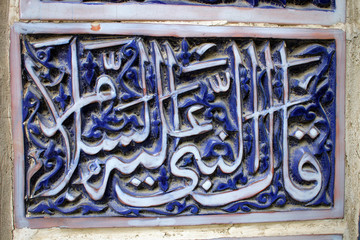 قال النبی علیه السلام